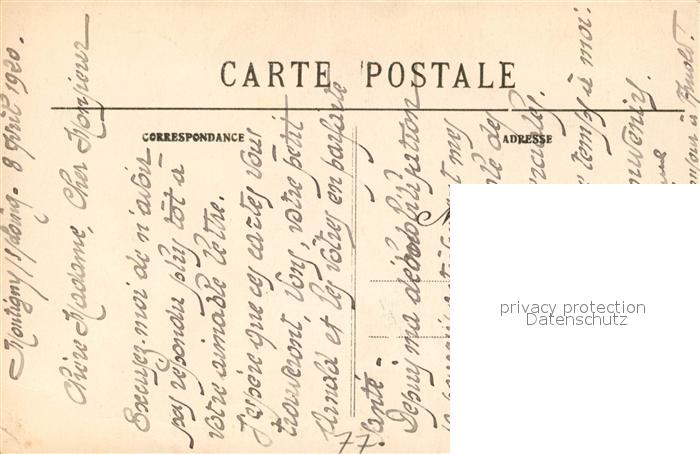 CARTE POSTALE
CORRESPONDANCE
ADRESSE
Montigny s/ Loing - 8 Avril 1920.
Chère Madame, Cher Monsieur
Excusez-moi de n'avoir
pas répondu plus tôt à
votre aimable lettre.
J'espère que ces cartes vous
trouveront, vous, votre petit
et les vôtres en parfaite
santé -
Depuis ma démobilisation
t my
de
temps à moi.
ouvenirs
77
privacy protection
Datenschutz